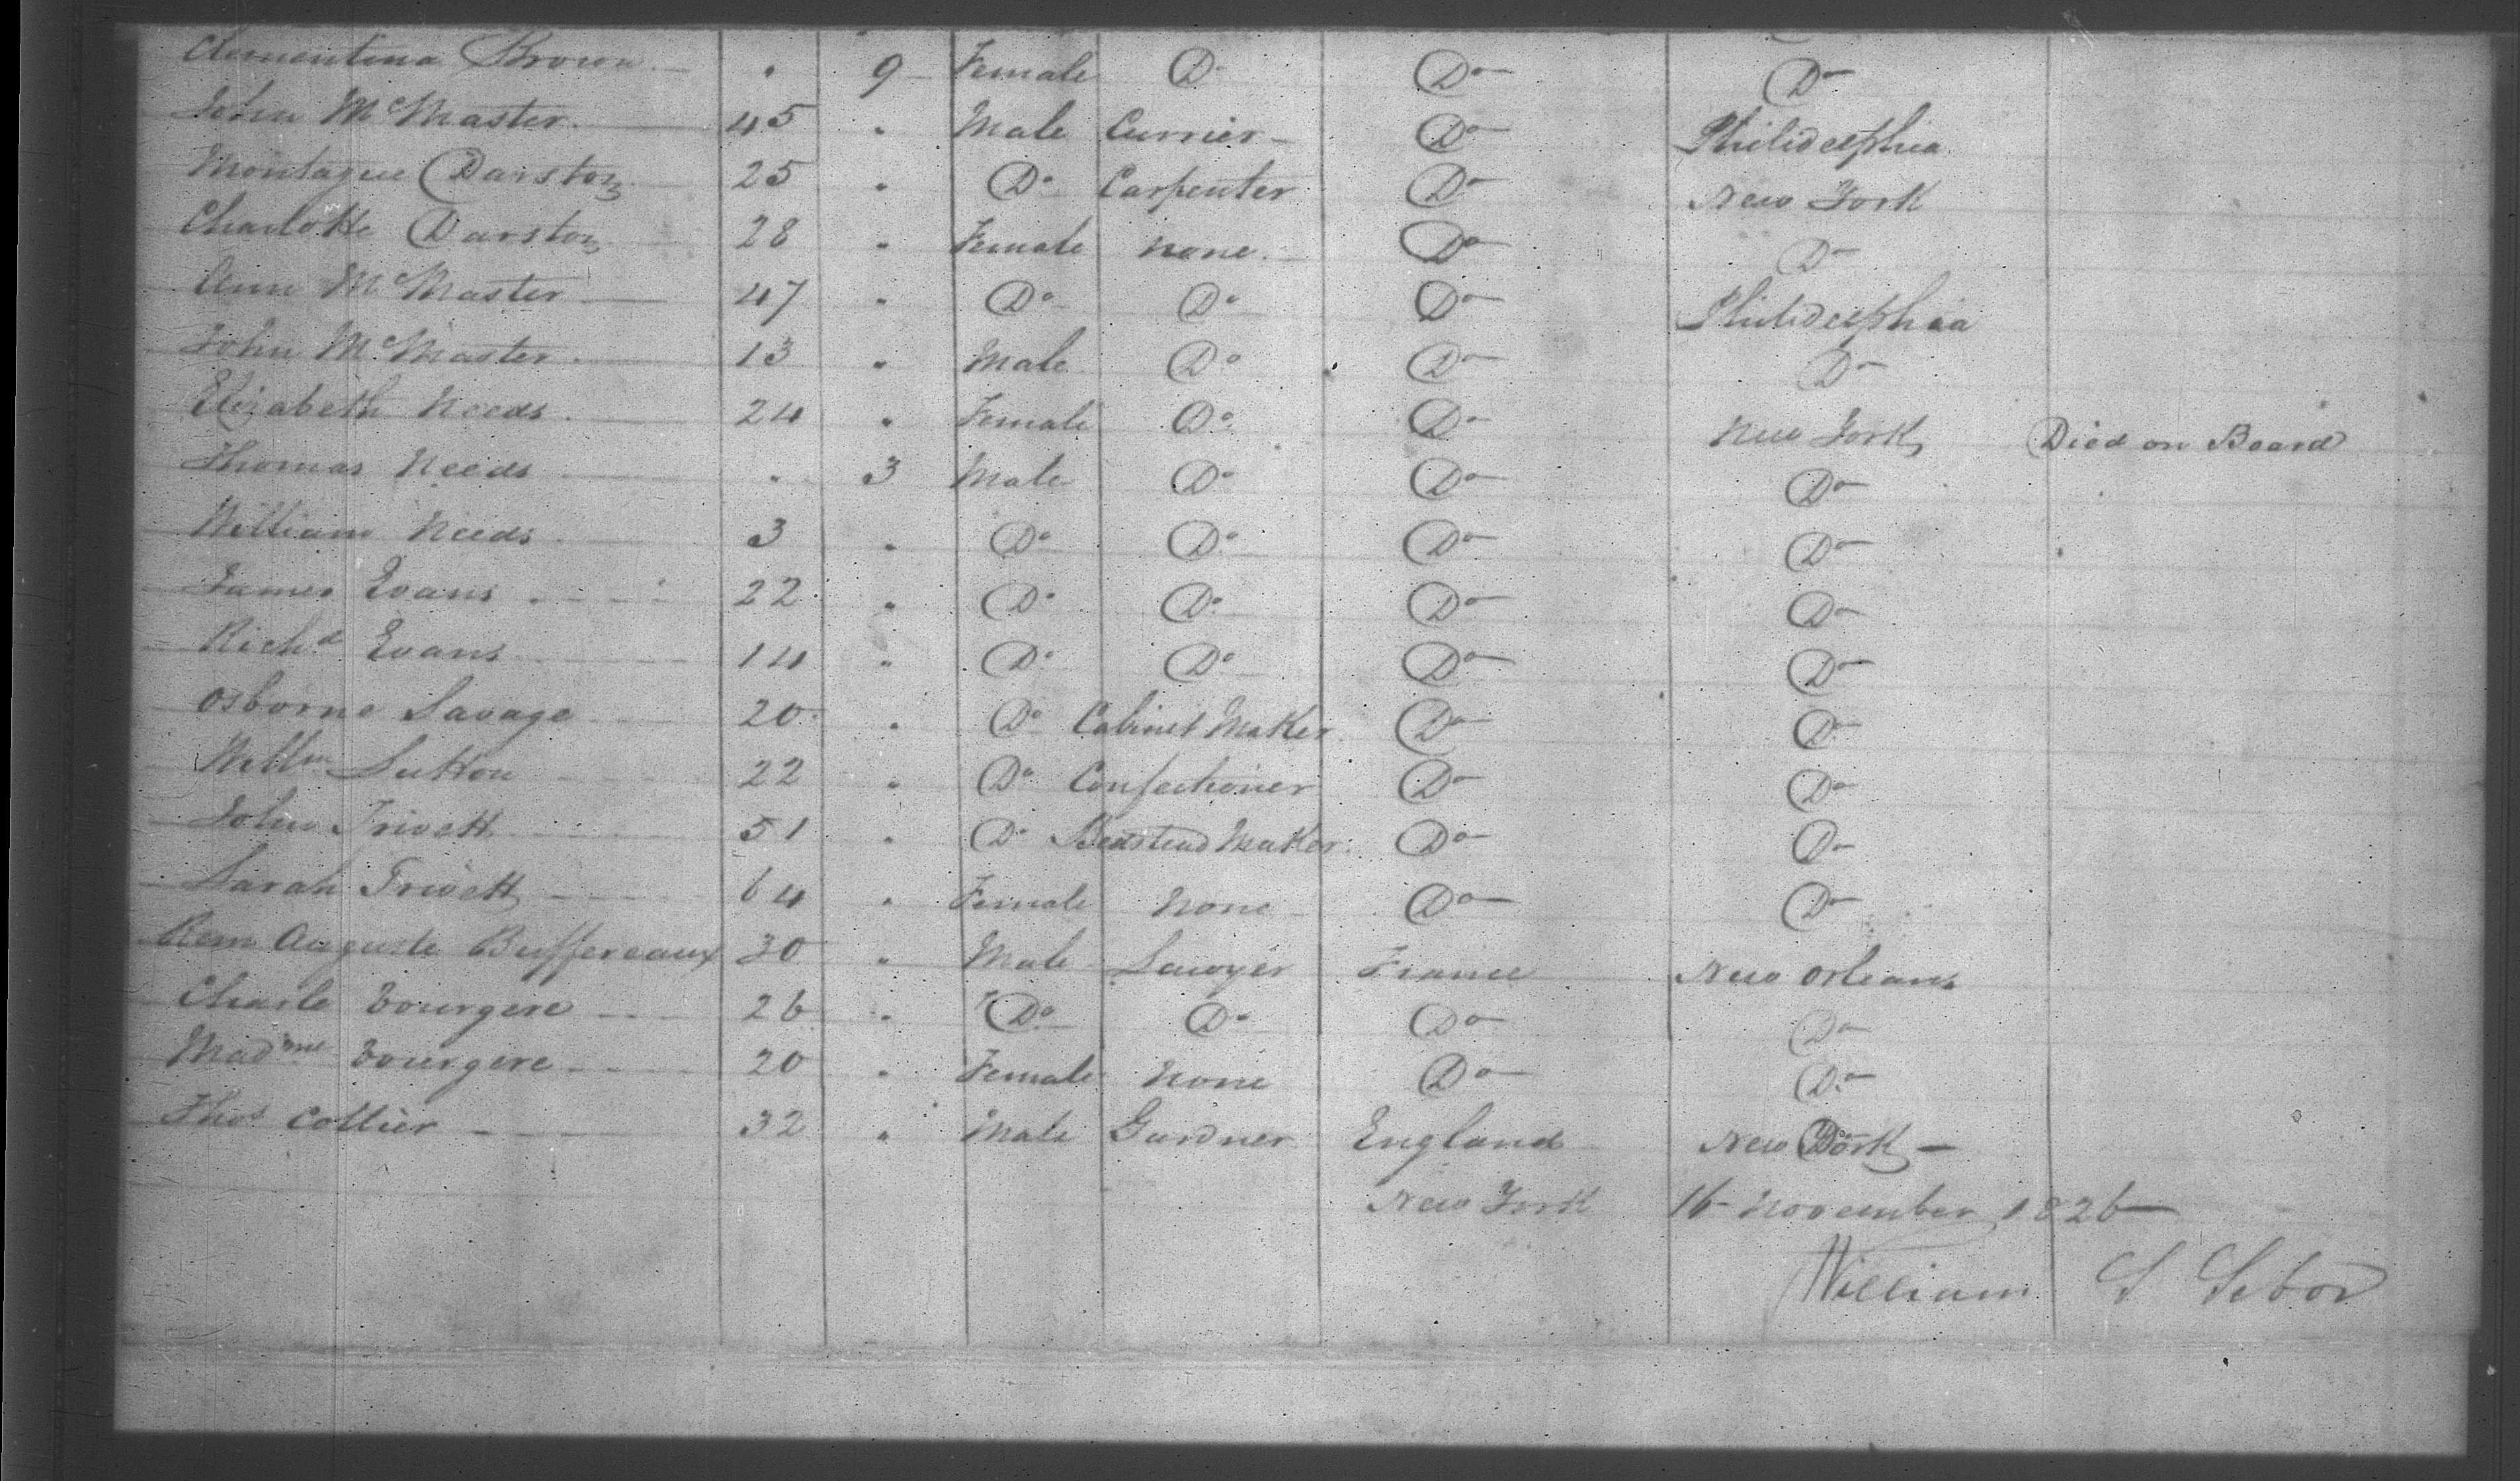 Clementina Brown " 9 Female Do Do Do
John McMaster 45 " Male Currier Do Philidelphia
Montague Darston 25 " Do Carpenter Do New York
Charlotte Darston 28 " Female none Do Do
Ann McMaster 47 " Do Do Do Philidelphia
John McMaster 13 " Male Do Do Do
Elizabeth Needs 24 " Female Do Do New York Died on Board
Thomas Needs " 3 Male Do Do Do
William Needs 3 " Do Do Do Do
James Evans 22 " Do Do Do Do
Richd Evans 14 " Do Do Do Do
Osborne Savage 20 " Do Cabinet Maker Do Do
Willm Sutton 22 " Do Confectioner Do Do
John Trivett 51 " Do Bedstead Maker Do Do
Sarah Trivett 64 " Female none Do Do
Auguste Buffereaux 30 " Male Lawyer France New Orleans
Charle Tourgere 26 " Do Do Do Do
Madme Tourgere 20 " Female None Do Do
Thos Collier 32 " Male Gardner England New York
New York 16 November 1826
William S Sebor